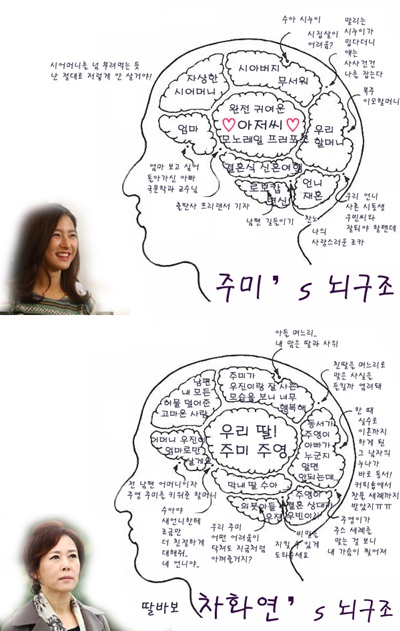 수아 시누이
시집살이
어려움?
말리는
시누이가
밉다더니
얘는
사사건건
나를 잡는다
시어머니를 넘 부려먹는 듯
난 절대로 저렇게 안 살거야!
자상한
시어머니
시아버지
무서워
복주
이모할머니
엄마
완전 귀여운
♡ 아저씨 ♡
모노레일 프러포즈
우리
할머니
엄마 보고 싶어
돌아가신 아빠
국문학과 교수님
결혼식 신혼여행
출판사 프리랜서 기자
로보캅
변신
언니
재혼
남편 길들이기
찬노
나의
사랑스러운 조카
우리 언니
사촌 시동생
우빈씨와
잘되야 할텐데
주미's 뇌구조
아든 며느리..
내 맘은 딸과 사위
남편
내 모든
허물 덜어준
고마운 사람
주미가
우진이랑 잘 사는
모습을 보니 너무
행복해
친딸을 며느리로
맞은 사실을
들킬까 염려돼
우리 딸!
주미 주영
동서가
주영이
아빠가
누군지
알면
안되는데.
한 때
실수로
이혼까지
하게 된
그 남자의
누나가
바로 동서!
커피숍에서
찬물 세례까지
받았지ㅠㅠ
어머니 우진이
엄마로만
살게요
전 남편 어머니이자
주영 주미를 키워준 할머니
막내 딸 수아
의붓아들
우진
주영이
결혼 상대가
우빈이라니
수아야
새언니한테
조금만
더 친절하게
대해줘..
네 언니야..
우리 주미
어떤 어려움이
닥쳐도 지금처럼
아껴줄거지?
비밀은
지킬 수 있게
도와주세요
주영이가
주스 세례를
맞는 걸 보니
내 가슴이 찢어져
딸바보 차화연's 뇌구조